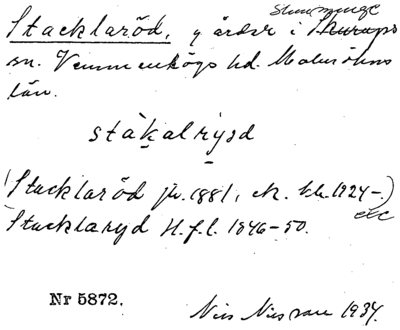 Skumminge
Stacklaröd, gårdar i Skurups
sn. Vemmenhögs hd. Malmöhus
län.
stàkalrysd
(Stacklaröd jr. 1881, ek. bl. 1924-.)
etc
Stacklaryd H.f.l. 1846-50.
Nr 5872.
Nils Nilsson 1937.